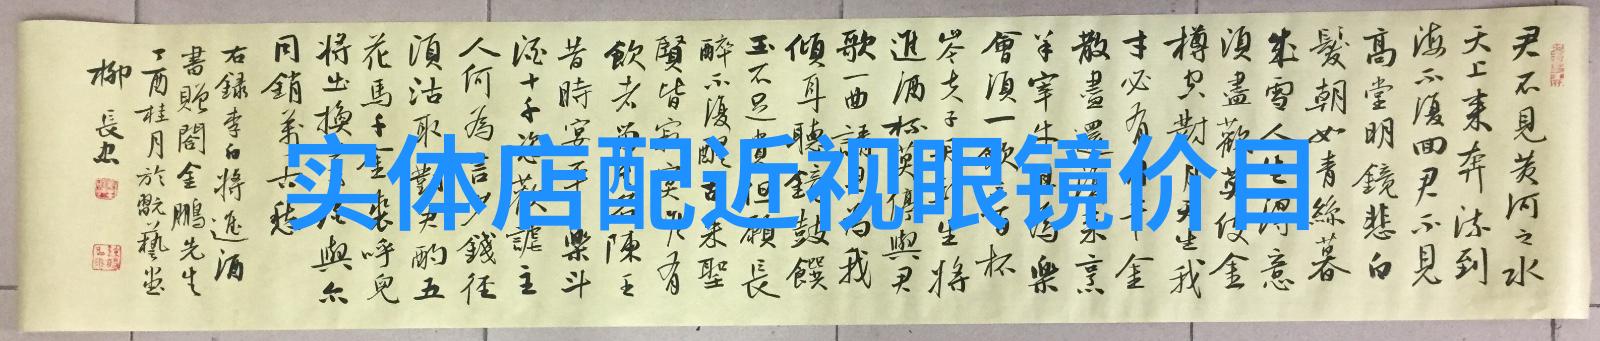 君不見黄河之水
天上来奔流到
海不復回君不見
高堂明鏡悲白
髮朝如青絲暮
成雪人生得意
須盡歡莫使金
樽空對月天生我
才必有用千金
散盡還復来烹
羊宰牛且為樂
會須一飲三百杯
岑夫子丹丘生將
進酒杯莫停與君
歌一曲請君為我
傾耳聽鐘鼓饌
玉不足貴但願長
醉不復醒古来聖
賢皆寂寞惟有
飲者留名陳王
昔時宴平樂斗
酒十千恣歡謔主
人何為言少錢径
須沽取對君酌五
花馬千金裘呼兒
將出換美酒與尔
同銷萬古愁
右録李白將進酒
書贈閻金鵬先生
丁酉桂月於翫藝堂
柳長忠
实体店配近视眼镜价目